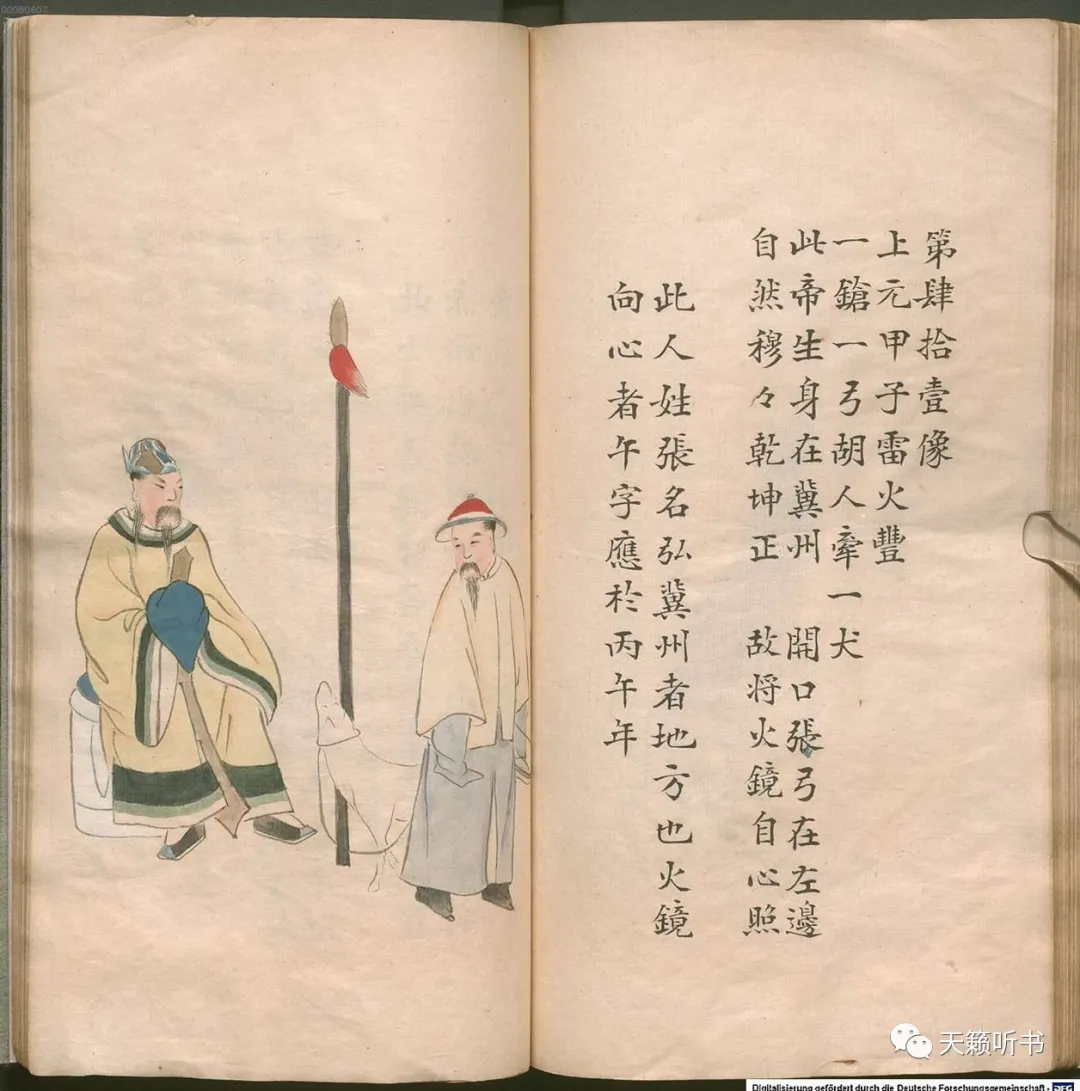 00080607
第肆拾壹像
上元甲子雷火豐
一鎗一弓胡人牽一犬
此帝生身在冀州 開口張弓在左邊
自然穆々乾坤正 故将火鏡自心照
此人姓張名弘冀州者地方也火鏡
向心者午字應於丙午年
天籁听书
Digitalisierung gefördert durch die Deutsche Forschungsgemeinschaft - DFG